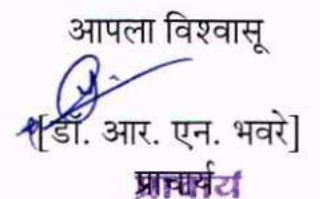 आपला विश्वासू
[डॉ. आर. एन. भवरे]
प्राचार्य